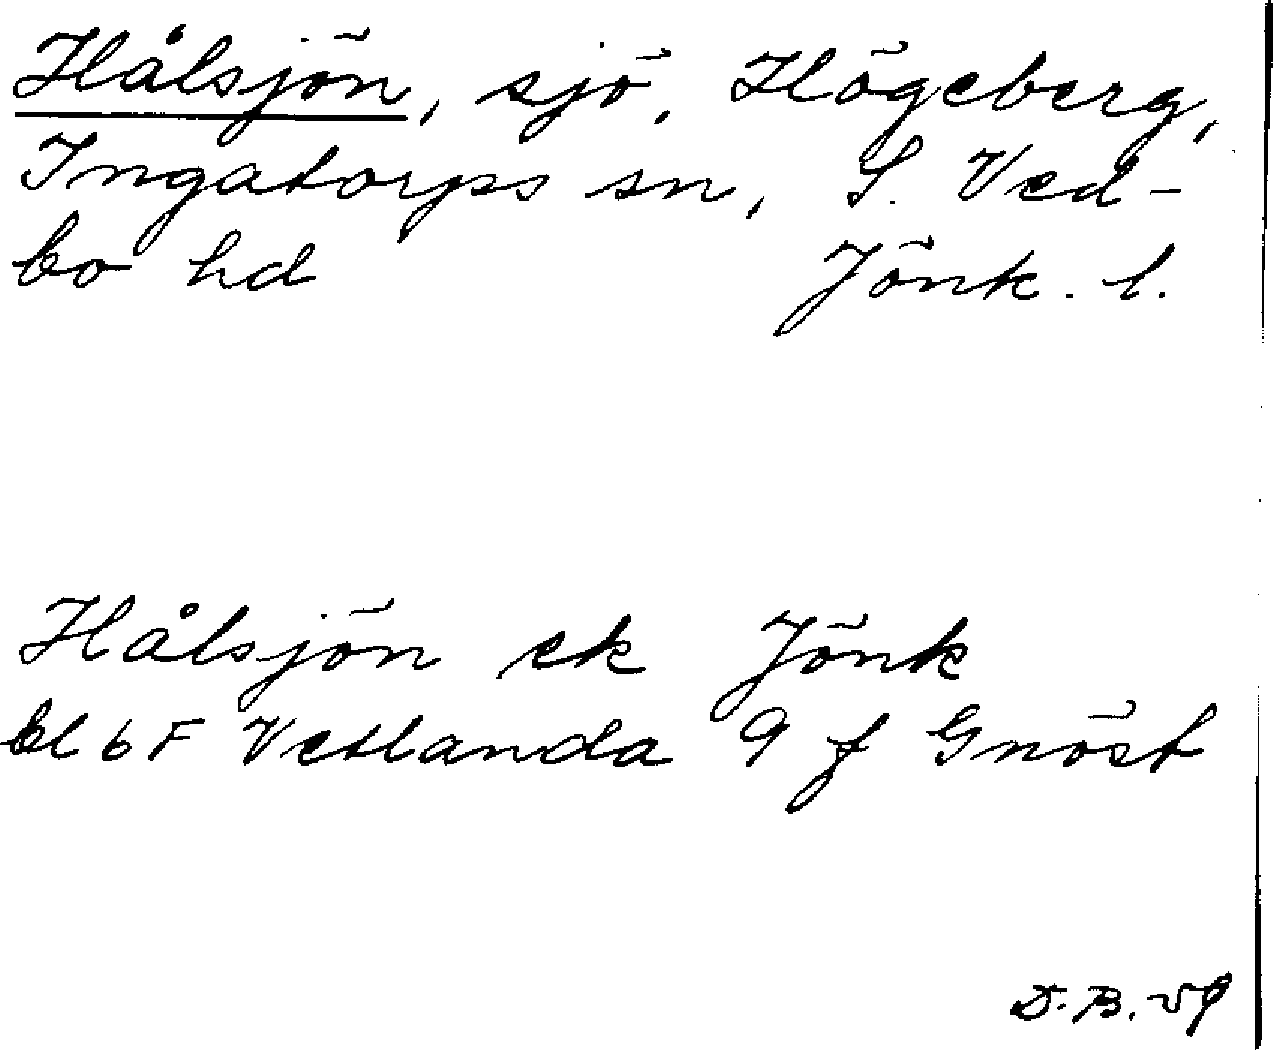 Hålsjön, sjö, Högeberg,
Ingatorps sn, S. Ved-
bo hd Jönk. l.
Hålsjön ek Jönk
bl 6F Vetlanda 9 f Gnöst
D.B.